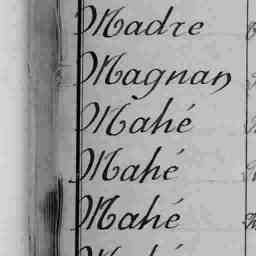 Madre
Magnan
Mahé
Mahé
Mahé